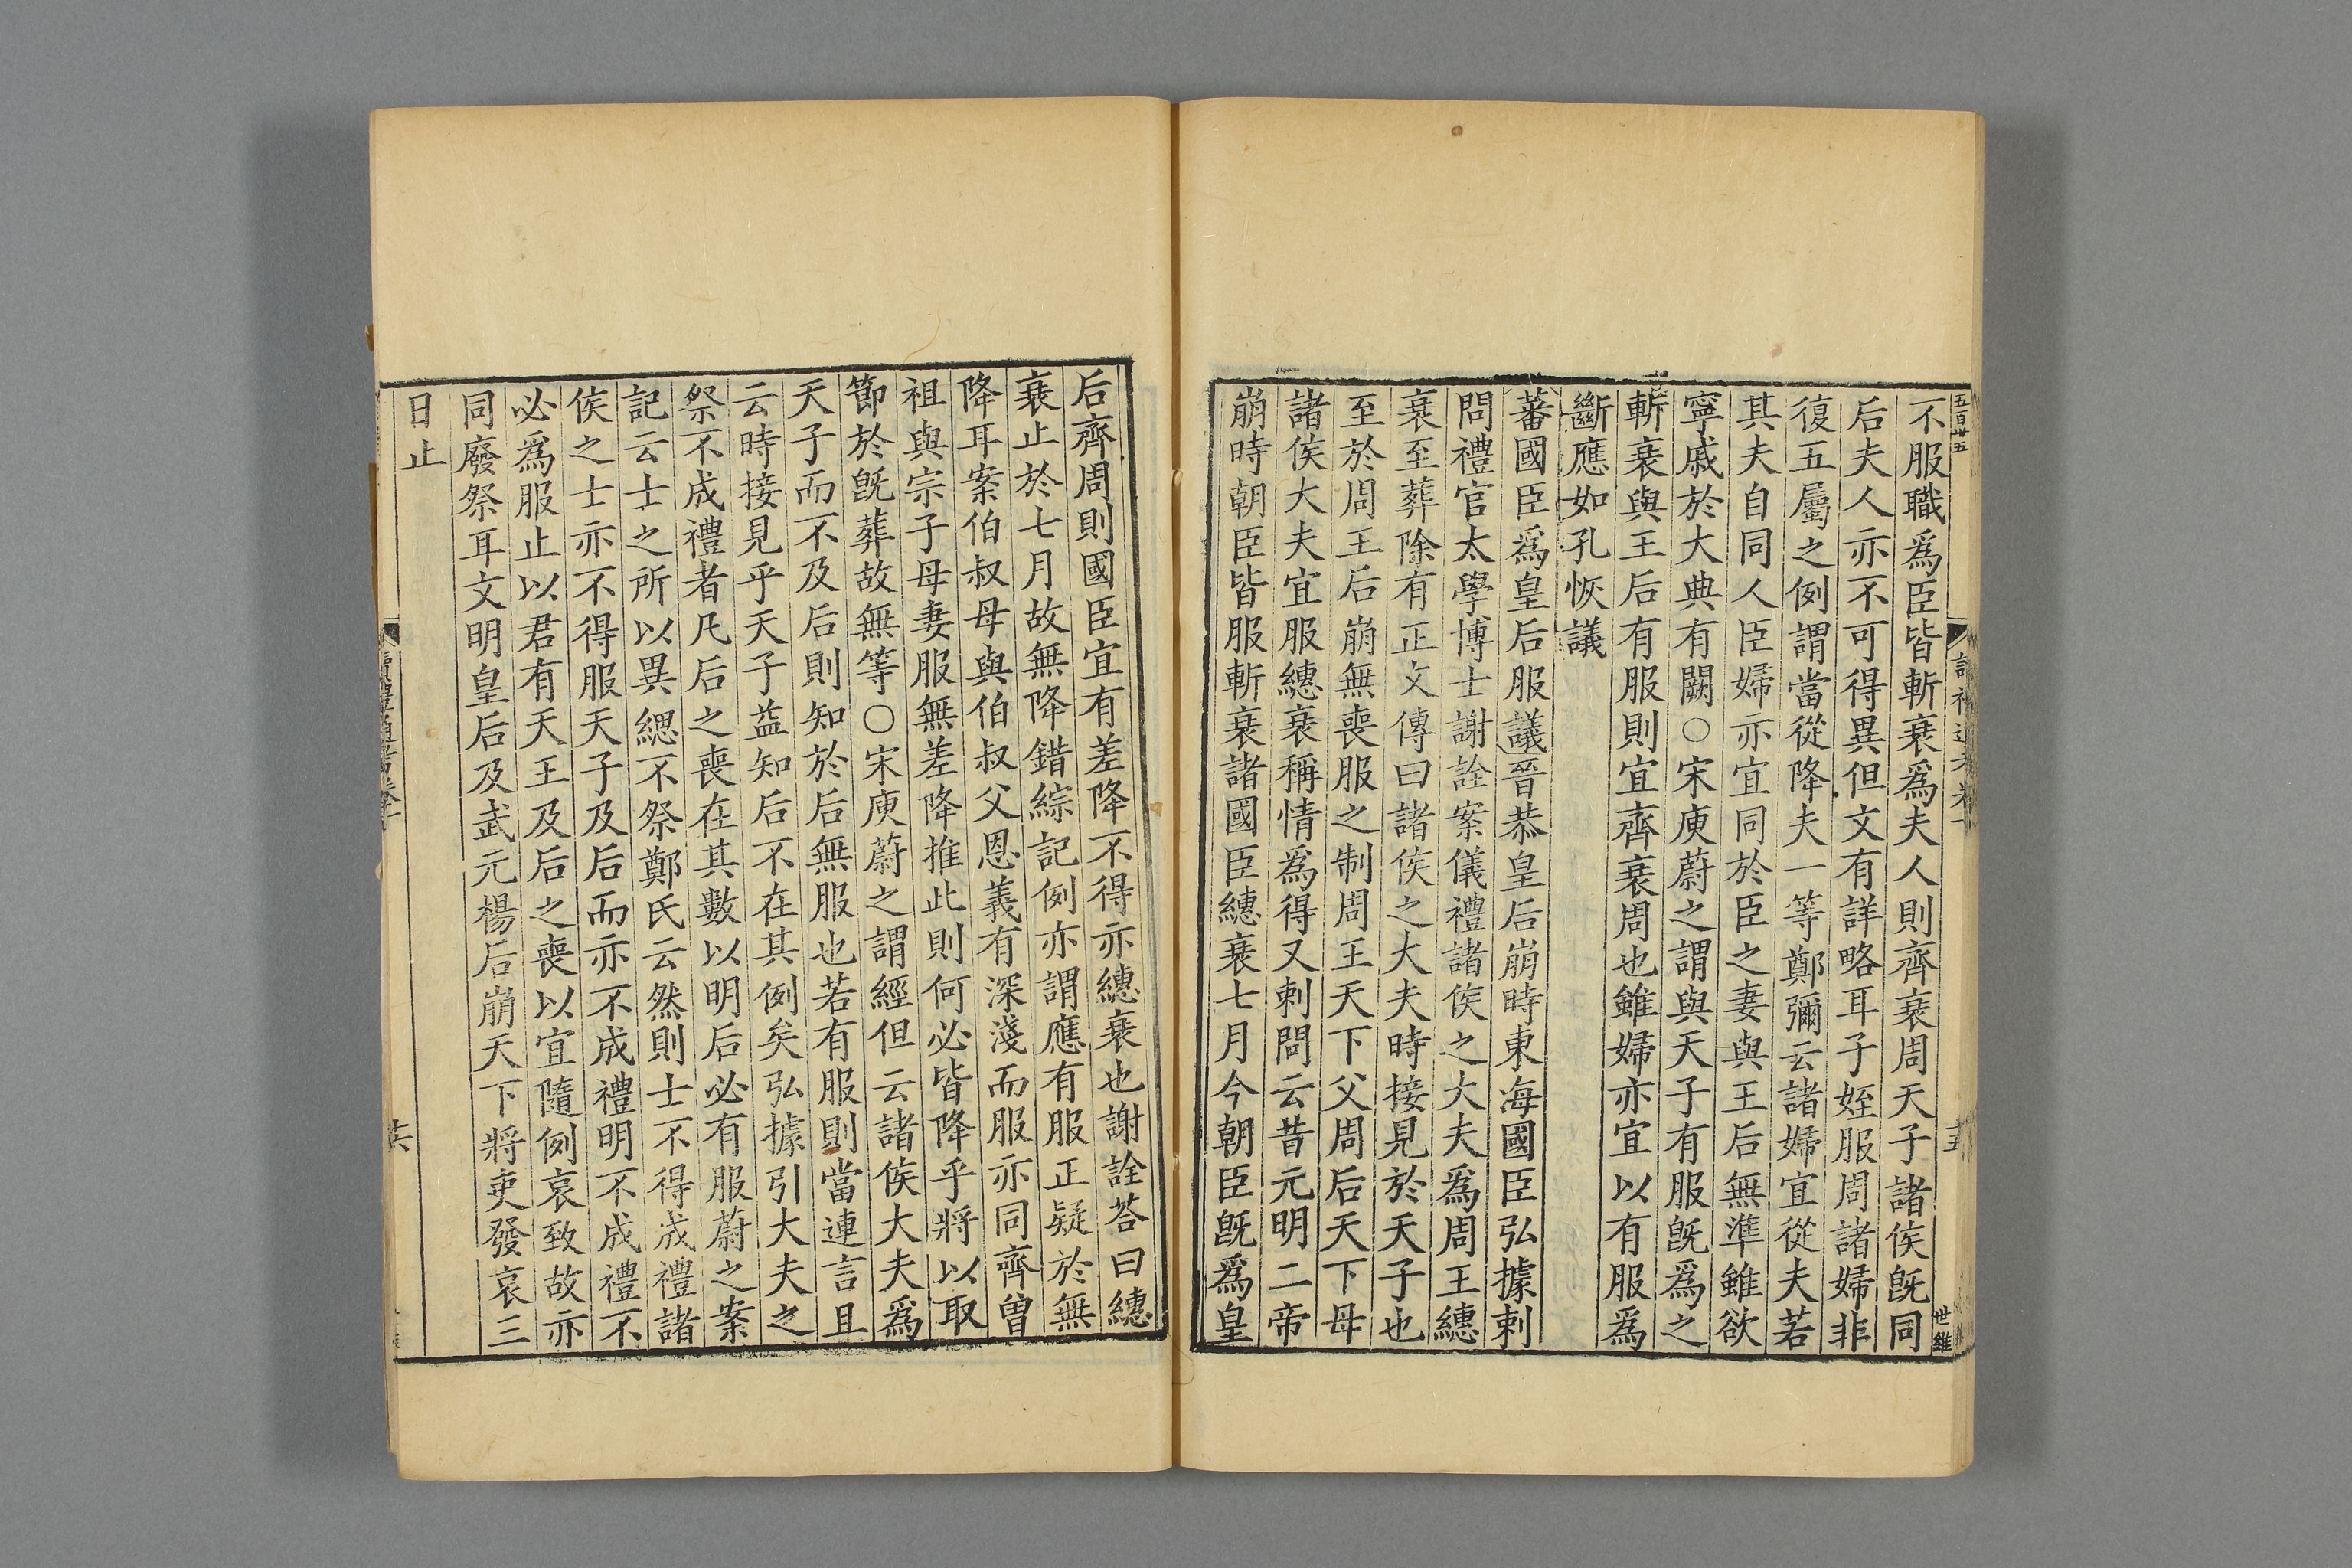 五百卅五
世雖
不服職爲臣皆斬衰爲夫人則齊衰周天子諸侯旣同
后夫人亦不可得異但文有詳略耳子姪服周諸婦非
復五屬之例謂當從降夫一等鄭彌云諸婦宜從夫若
其夫自同人臣婦亦宜同於臣之妻與王后無準雖欲
寧戚於大典有闕○宋庾蔚之謂與天子有服旣爲之
斬衰與王后有服則宜齊衰周也雖婦亦宜以有服爲
斷應如孔恢議
蕃國臣爲皇后服議晉恭皇后崩時東海國臣弘據刺
問禮官太學博士謝詮案儀禮諸侯之大夫爲周王繐
衰至葬除有正文傳曰諸侯之大夫時接見於天子也
至於周王后崩無喪服之制周王天下父周后天下母
諸侯大夫宜服繐衰稱情爲得又刺問云昔元明二帝
崩時朝臣皆服斬衰諸國臣繐衰七月今朝臣旣爲皇
后齊周則國臣宜有差降不得亦繐衰也謝詮荅曰繐
衰止於七月故無降錯綜記例亦謂應有服正疑於無
降耳案伯叔母與伯叔父恩義有深淺而服亦同齊曾
祖與宗子母妻服無差降推此則何必皆降乎將以取
節於旣葬故無等○宋庾蔚之謂經但云諸侯大夫爲
天子而不及后則知於后無服也若有服則當連言且
云時接見乎天子益知后不在其例矣弘據引大夫之
祭不成禮者凡后之喪在其數以明后必有服蔚之案
記云士之所以異緦不祭鄭氏云然則士不得成禮諸
侯之士亦不得服天子及后而亦不成禮明不成禮不
必爲服止以君有天王及后之喪以宜隨例哀致故亦
同廢祭耳文明皇后及武元楊后崩天下將吏發哀三
日止